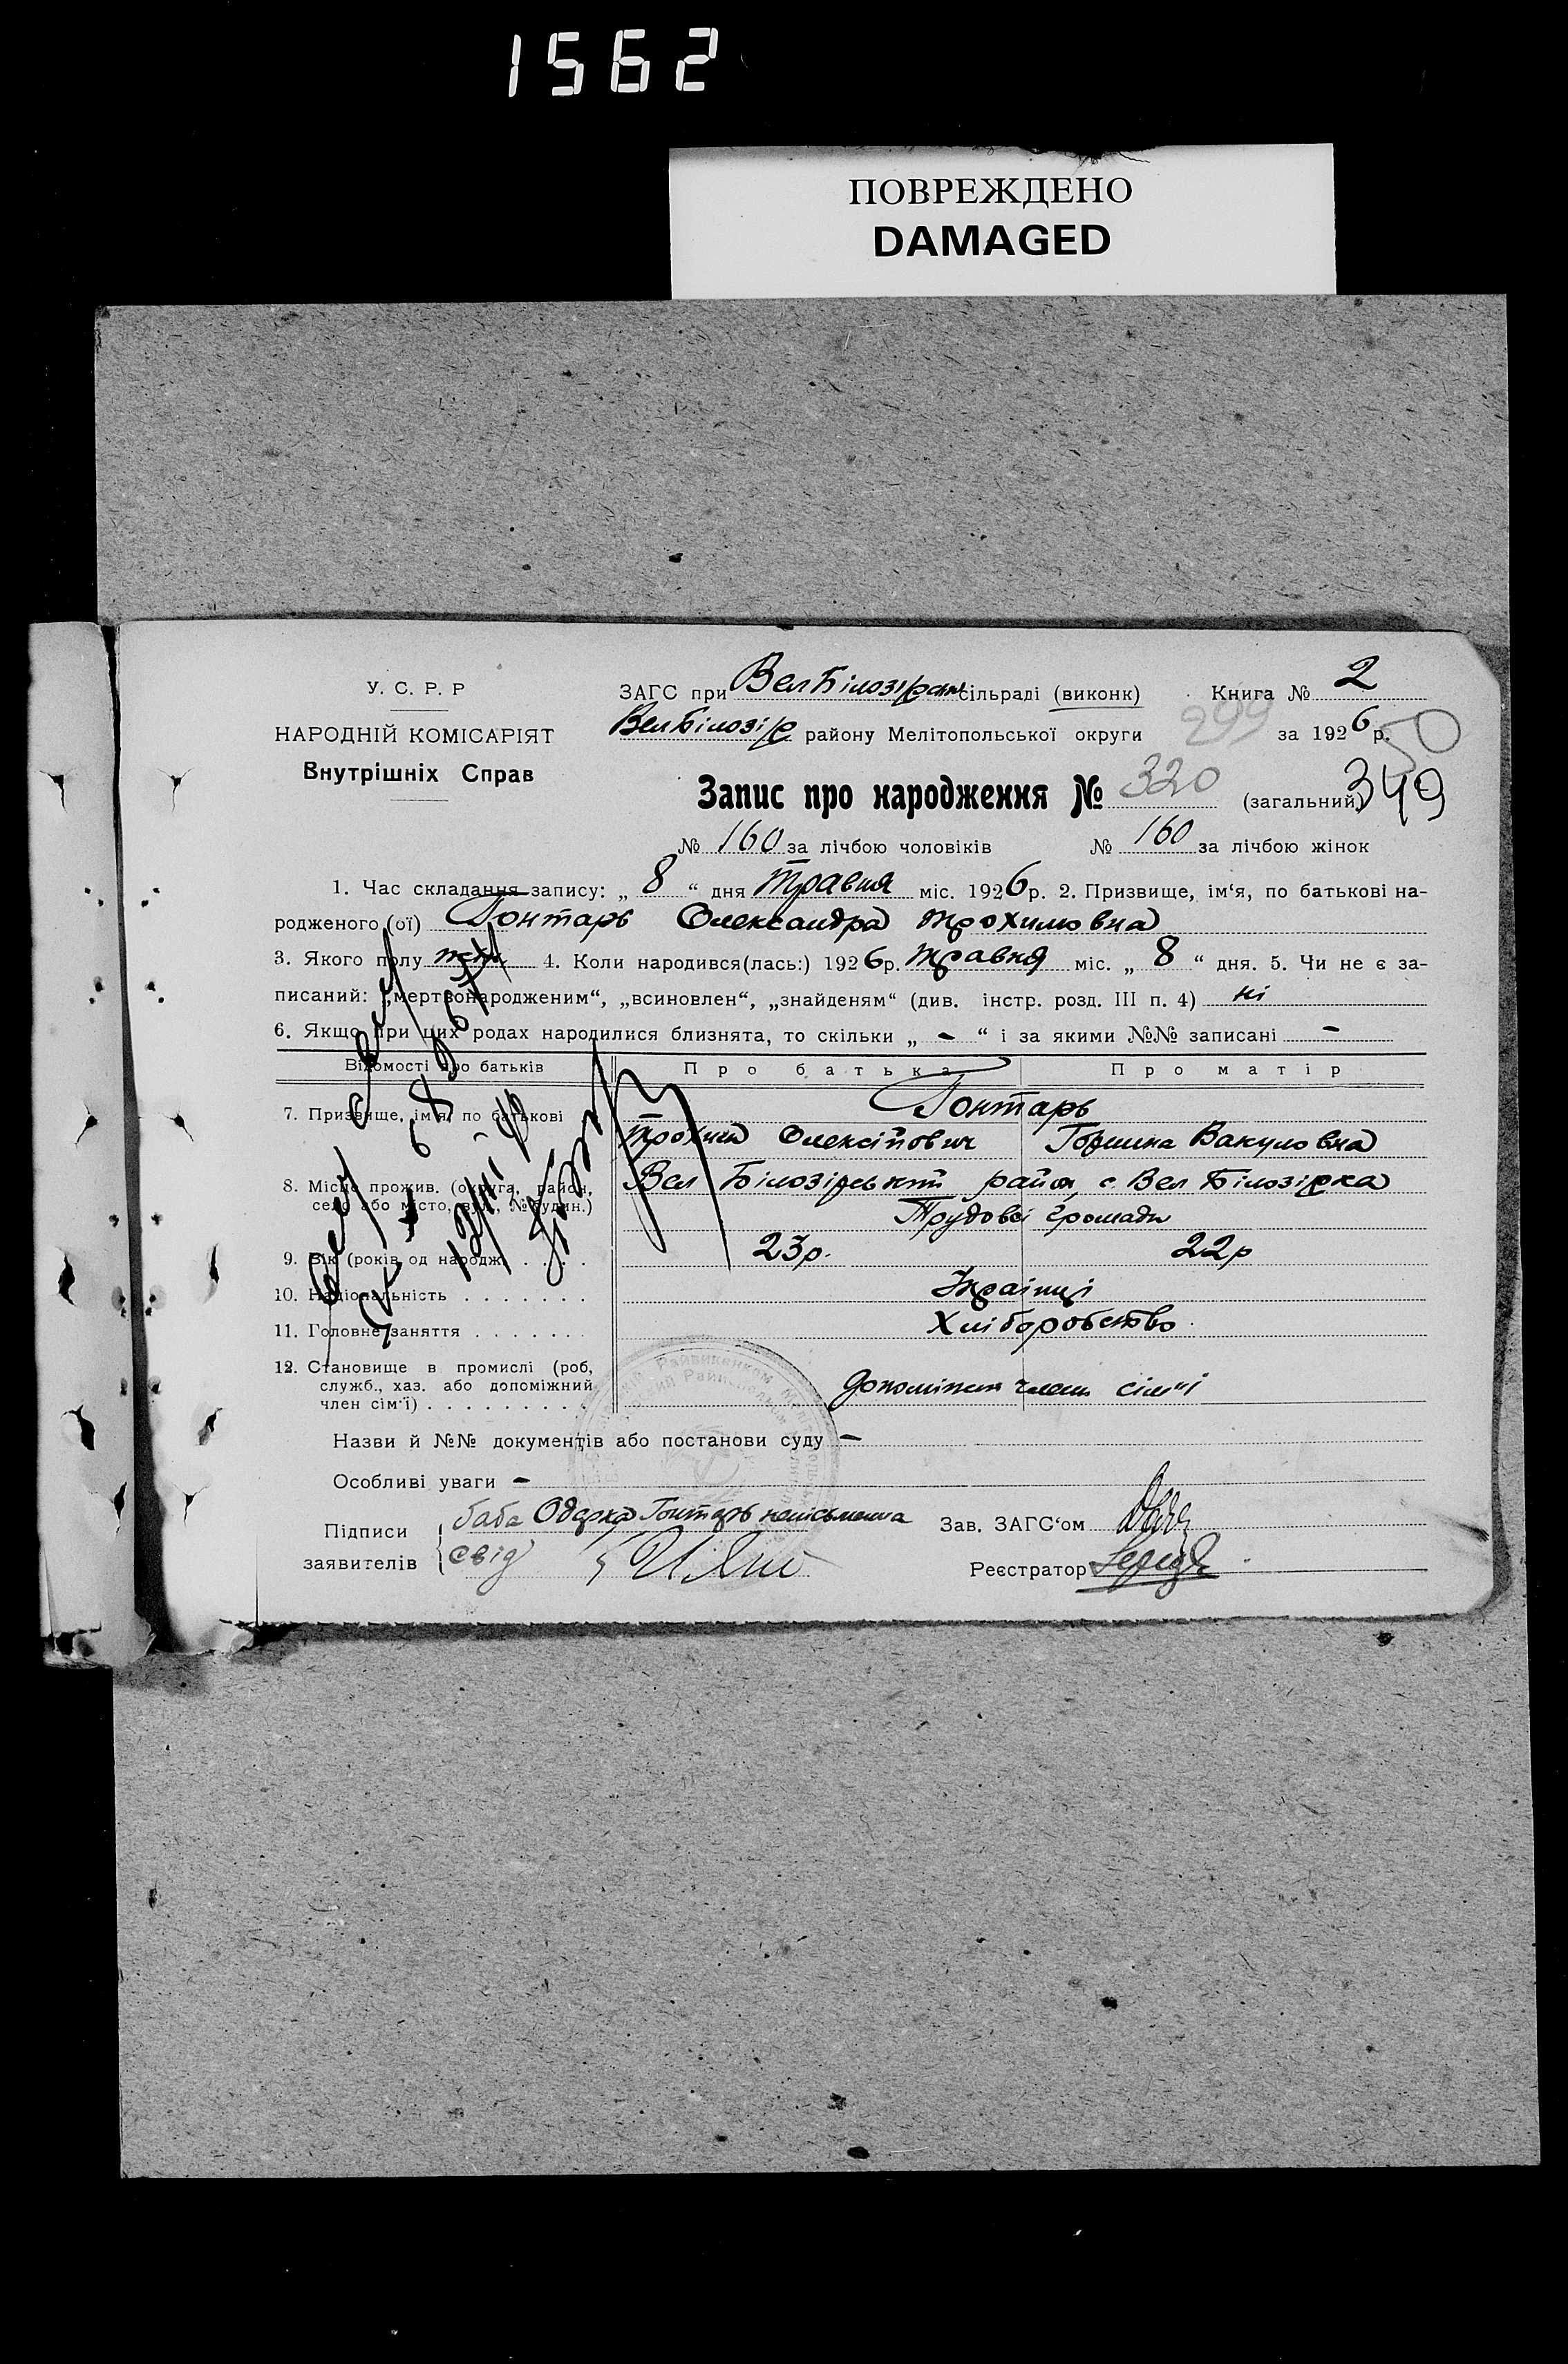 1562
ПОВРЕЖДЕНО
DAMAGED
У. С. Р. Р
НАРОДНІЙ КОМІСАРІЯТ
Внутрішніх Справ
ЗАГС при Вел Білозірськ сільраді (виконк) Книга № 2
Вел Білозір району Мелітопольської округи 299 за 1926 р. 50
Запис про народження № 320 (загальний) 349
№ 160 за лічбою чоловіків № 160 за лічбою жінок
1. Час складання запису: „ 8 “ дня Травня міс. 1926 р. 2. Призвище, ім‘я, по батькові на-
родженого (ої) Гонтарь Олександра Трохимовна
3. Якого полу жін 4. Коли народився(лась:) 1926 р. Травня міс. „ 8 “ дня. 5. Чи не є за-
писаний: „мертвонародженим“, „всиновлен“, „знайденям“ (див. інстр. розд. III п. 4) ні
6. Якщо при цих родах народилися близнята, то скільки „ - “ і за якими №№ записані -
Відомості про батьків Про батька Про матір
7. Призвище, ім‘я, по батькові Гонтарь
Трохим Олексійович Вакуловна
8. Місце прожив. (округа, район,
село або місто, вул., № будин.)
Вел Білозірський район, с. Вел Білозірка
Трудової громади
9. Вік (років од народж) . . . . 23 р. 22 р
10. Національність . . . . . . . Українці
11. Головне заняття . . . . . . . Хліборобство
12. Становище в промислі (роб,
служб., хаз. або допоміжний
член сім‘ї) . . . . . . . . .
допоміжн члени сім"ї
Назви й №№ документів або постанови суду —
Особливі уваги —
Підписи
заявителів
баба Одарка Гонтарь неписьменна
свід
Зав. ЗАГС‘ом
Реєстратор